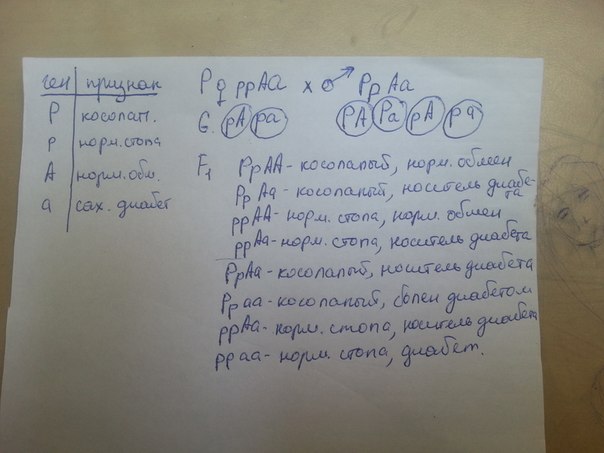 ген признак
P косолап.
p норм. стопа
A норм. обм.
a сах. диабет
P ♀ ppAa x ♂ PpAa
G. pA pa PA Pa pA pa
F1 PpAA - косолапый, норм. обмен
PpAa - косолапый, носитель диабета
ppAA - норм. стопа, норм. обмен
ppAa - норм. стопа, носитель диабета
PpAa - косолапый, носитель диабета
Ppaa - косолапый, болен диабетом
ppAa - норм. стопа, носитель диабета
ppaa - норм. стопа, диабет.